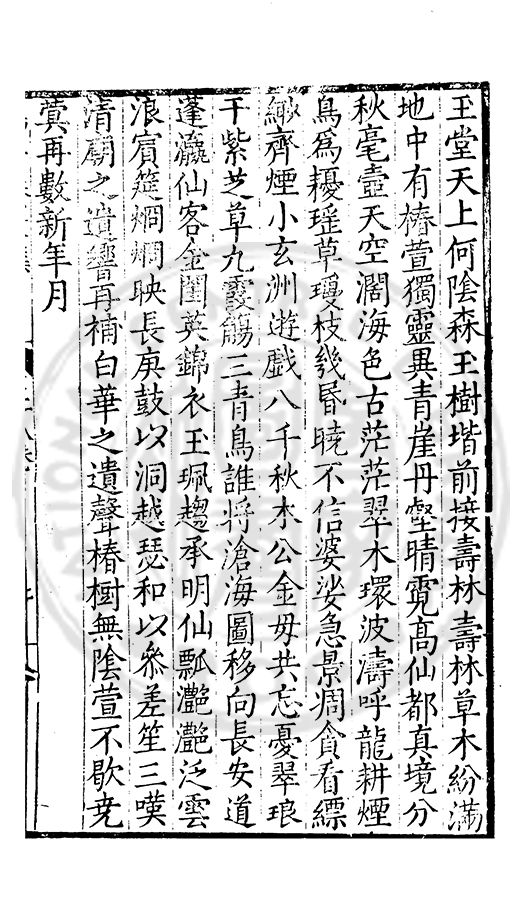 玉堂天上何隂森玉樹堦前接壽林壽林草木紛滿
地中有椿萱獨靈異青崖丹壑晴霓高仙都真境分
秋毫壺天空濶海色古茫茫翠木環波濤呼龍耕煙
鳥爲耰瑶草瓊枝幾昏曉不信婆娑急景凋貪看縹
緲齊煙小玄洲遊戲八千秋木公金母共忘憂翠琅
干紫芝草九霞觴三青鳥誰将滄海圖移向長安道
蓬瀛仙客金閨英錦衣玉珮趨承明仙瓢灔灔泛雲
浪賓筵烱烱映長庚鼓以洞越瑟和以叅差笙三嘆
清廟之遺響再補白華之遺聲椿樹無隂萱不歇尭
蓂再數新年月